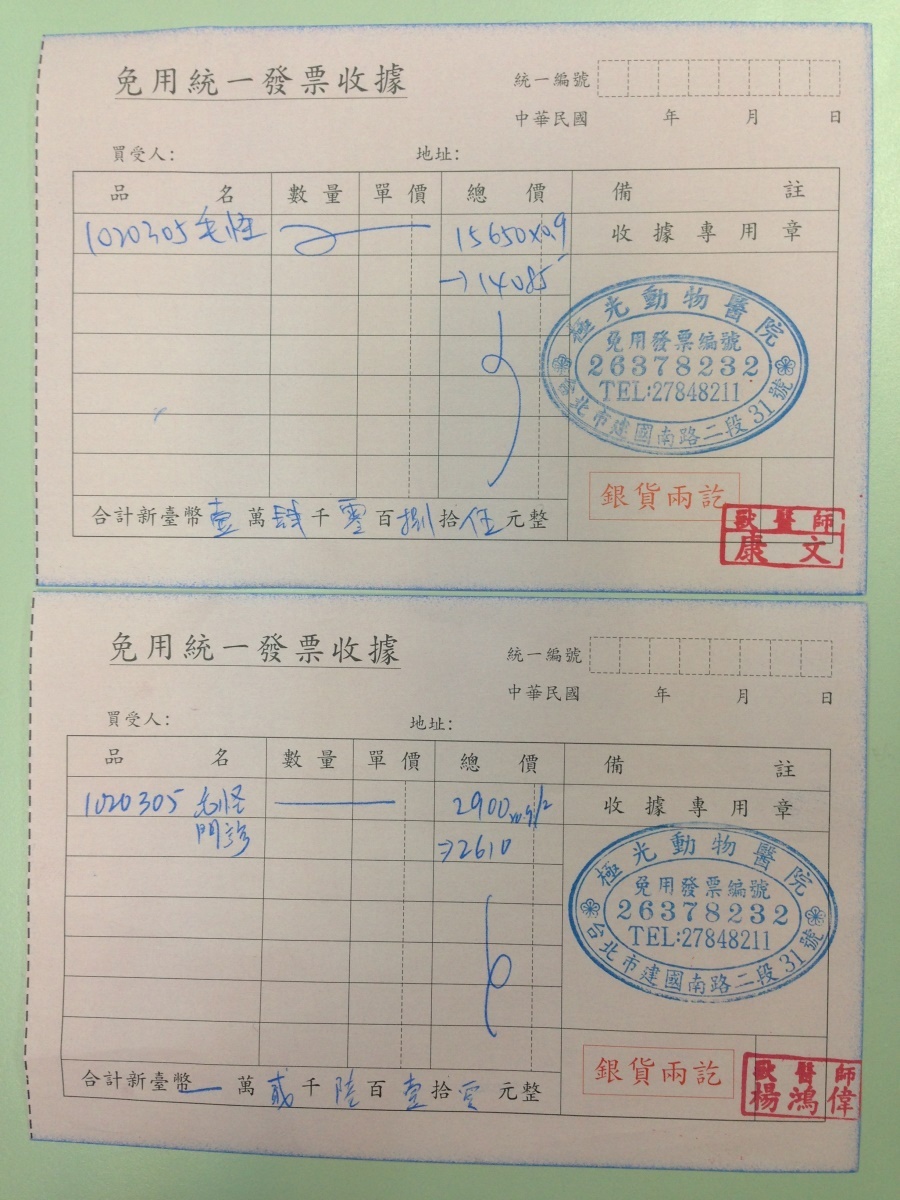 免用統一發票收據
統一編號
中華民國 年 月 日
買受人： 地址：
品名 數量 單價 總價 備註
1020305 毛怪 15650x0.9 收據專用章
→14085
極光動物醫院
免用發票編號
26378232
TEL:27848211
台北市建國南路二段31號
銀貨兩訖
合計新臺幣壹萬肆千零百捌拾伍元整
獸醫師
康文
免用統一發票收據
統一編號
中華民國 年 月 日
買受人： 地址：
品名 數量 單價 總價 備註
1020305 毛怪 2900 收據專用章
門診 →2610
極光動物醫院
免用發票編號
26378232
TEL:27848211
台北市建國南路二段31號
銀貨兩訖
合計新臺幣 萬貳千陸百壹拾零元整
獸醫師
楊鴻偉